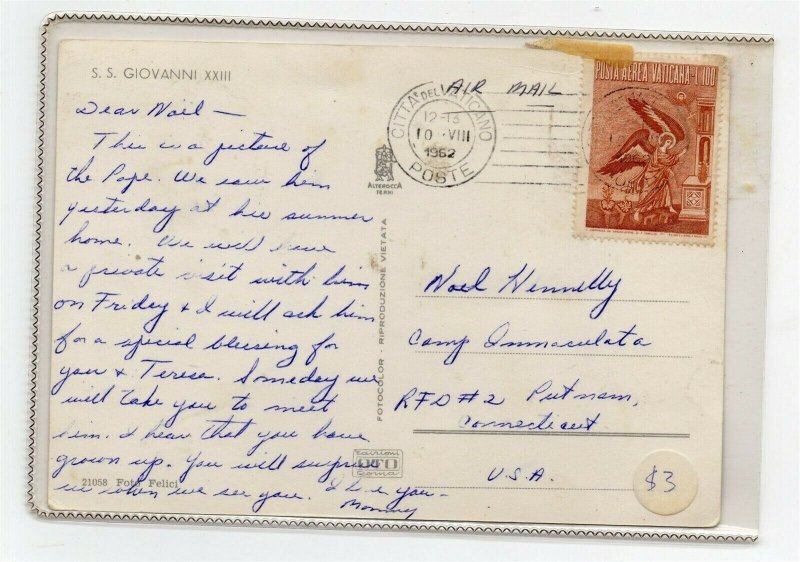 S. S. GIOVANNI XXIII
Dear Noel —
This is a picture of
the Pope. We saw him
yesterday at his summer
home. We will have
a private visit with him
on Friday & I will ask him
for a special blessing for
you & Teresa. Someday we
will take you to meet
him. I hear that you have
grown up. You will surprise
us when we see you. I love you —
Mommy
21058 Foto Felici
ALTEROCCA
TERNI
FOTOCOLOR - RIPRODUZIONE VIETATA
edizioni
OTO
Roma
AIR MAIL
CITTA' DEL VATICANO
12-13
10 VIII
1962
POSTE
POSTA AEREA VATICANA - L. 100
Noel Hennelly
Camp Immaculata
RFD #2 Putnam,
Connecticut
U.S.A.
$3